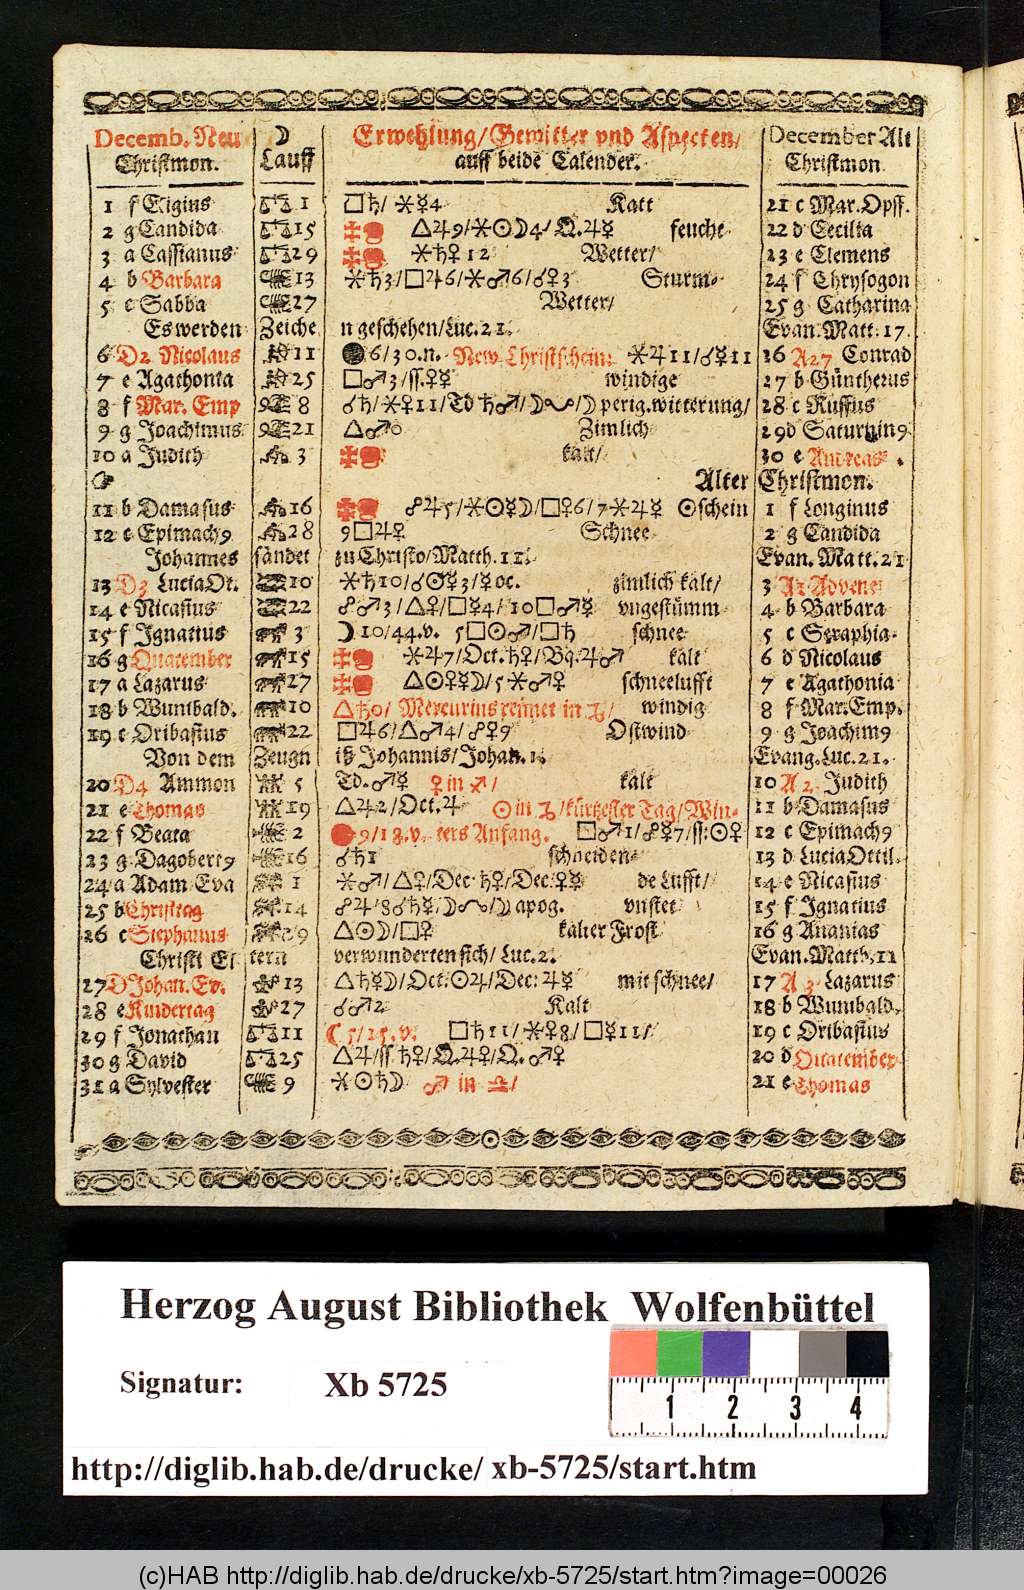 Decemb. Neu ☽ Erwehlung/ Gewitter vnd Aspecten/ December Alt
Christmon. Lauff auff beide Calender. Christmon
1 f Eligius ♎ 1 □♄/ ⚹☿4 Kalt 21 c Mar. Opff.
2 g Candida ♎ 15 △♃9/⚹☉☽4/ ♃☿ feuchte 22 d Cecilia
3 a Cassianus ♎ 29 ⚹♄♀12 Wetter/ 23 e Clemens
4 b Barbara ♏ 13 ⚹♄3/□♃6/⚹♂6/☌♀3 Sturm- 24 f Chrysogon
5 c Sabba ♏ 27 Wetter/ 25 g Catharina
Es werden Zeiche n geschehen/ Luc. 21. Evan. Matt. 17.
6 D2 Nicolaus 11 6/30.n. New Christschein: ⚹♃11/☌☿11 26 A27 Conrad
7 e Agathonia 25 □♂3/ss.♀☿ windige 27 b Güntherus
8 f Mar. Emp 8 ☌♄/⚹♀11/Td ♄♂/☽/☽ perig. witterung/ 28 c Ruffus
9 g Joachimus 21 △♂0 Zimlich 29 d Saturnin9
10 a Judith 3 kalt/ 30 e Andreas.
Alter Christmon.
11 b Damasus 16 ☍♃5/⚹☉☿☽/□♀6/7⚹♃☿ ☉schein 1 f Longinus
12 c Epimach9 28 9□♃♀ Schnee 2 g Candida
Johannes sandet zu Christo/ Matth. 11. Evan. Matt. 21
13 D3 Lucia Ot. 10 ⚹♄10/☌☉☿3/☿oc. zimlich kalt/ 3 A1 Advent
14 e Nicasius 22 ☍♂3/△♀/□☿4/10□♂☿ vngestümm 4 b Barbara
15 f Ignatius 3 ☽10/44.v. 5□☉♂/□♄ schnee 5 c Seraphia
16 g Quatember 15 ⚹♃7/Oct.♄♀/Bq.♃♂ kalt 6 d Nicolaus
17 a Lazarus 27 △☉♀☿☽/5⚹♂♀ schneelufft 7 e Agathonia
18 b Wunibald. 10 △♄0/ Mercurius rennet in ♑/ windig 8 f Mar. Emp.
19 c Oribasius 22 □♃6/△♂4/☍♀9 Ostwind 9 g Joachim9
Von dem Zeugn iß Johannis/ Johan. 1. Evang. Luc. 21.
20 D4 Ammon 5 Td.♂☿ ♀ in ♐/ kalt 10 A2 Judith
21 e Thomas 19 △♃2/Oct.♃ ☉ in ♑/kürtzester Tag/ Win- 11 b Damasus
22 f Beata 2 9/18.v. ters Anfang. □♂1/☍☿7/ss:☉♀ 12 c Epimach9
23 g Dagobert9 16 ☌♄1 schneiden- 13 d Lucia Ottil.
24 a Adam Eva 1 ⚹♂/△♀/Dec ♄♀/Dec:♀☿ de Lufft/ 14 e Nicasius
25 b Christag 14 ☍♃/8☌♄☿/☽/☽ apog. vnstet 15 f Ignatius
26 c Stephanus 29 △☉☽/□♀ kalter Frost 16 g Ananias
Christi El tern verwunderten sich/ Luc. 2. Evan. Matth. 11
27 D Johan. Ev. 13 △♄☿☽/Oct:☉♃/Dec:♃☿ mit schnee/ 17 A3 Lazarus
28 e Kindertag 27 ☌♂12 Kalt 18 b Wunibald.
29 f Jonathan ♎ 11 ☾5/25.v. □♄11/⚹♀8/□☿11/ 19 c Oribasius
30 g David ♎ 25 △♃/ss ♄♀/ ♃♀/ ♂♀ 20 d Quatember
31 a Sylvester ♏ 9 ⚹☉♄☽ ♂ in ♎/ 21 e Thomas
Herzog August Bibliothek Wolfenbüttel
Signatur: Xb 5725
1 2 3 4
http://diglib.hab.de/drucke/ xb-5725/start.htm
(c)HAB http://diglib.hab.de/drucke/xb-5725/start.htm?image=00026